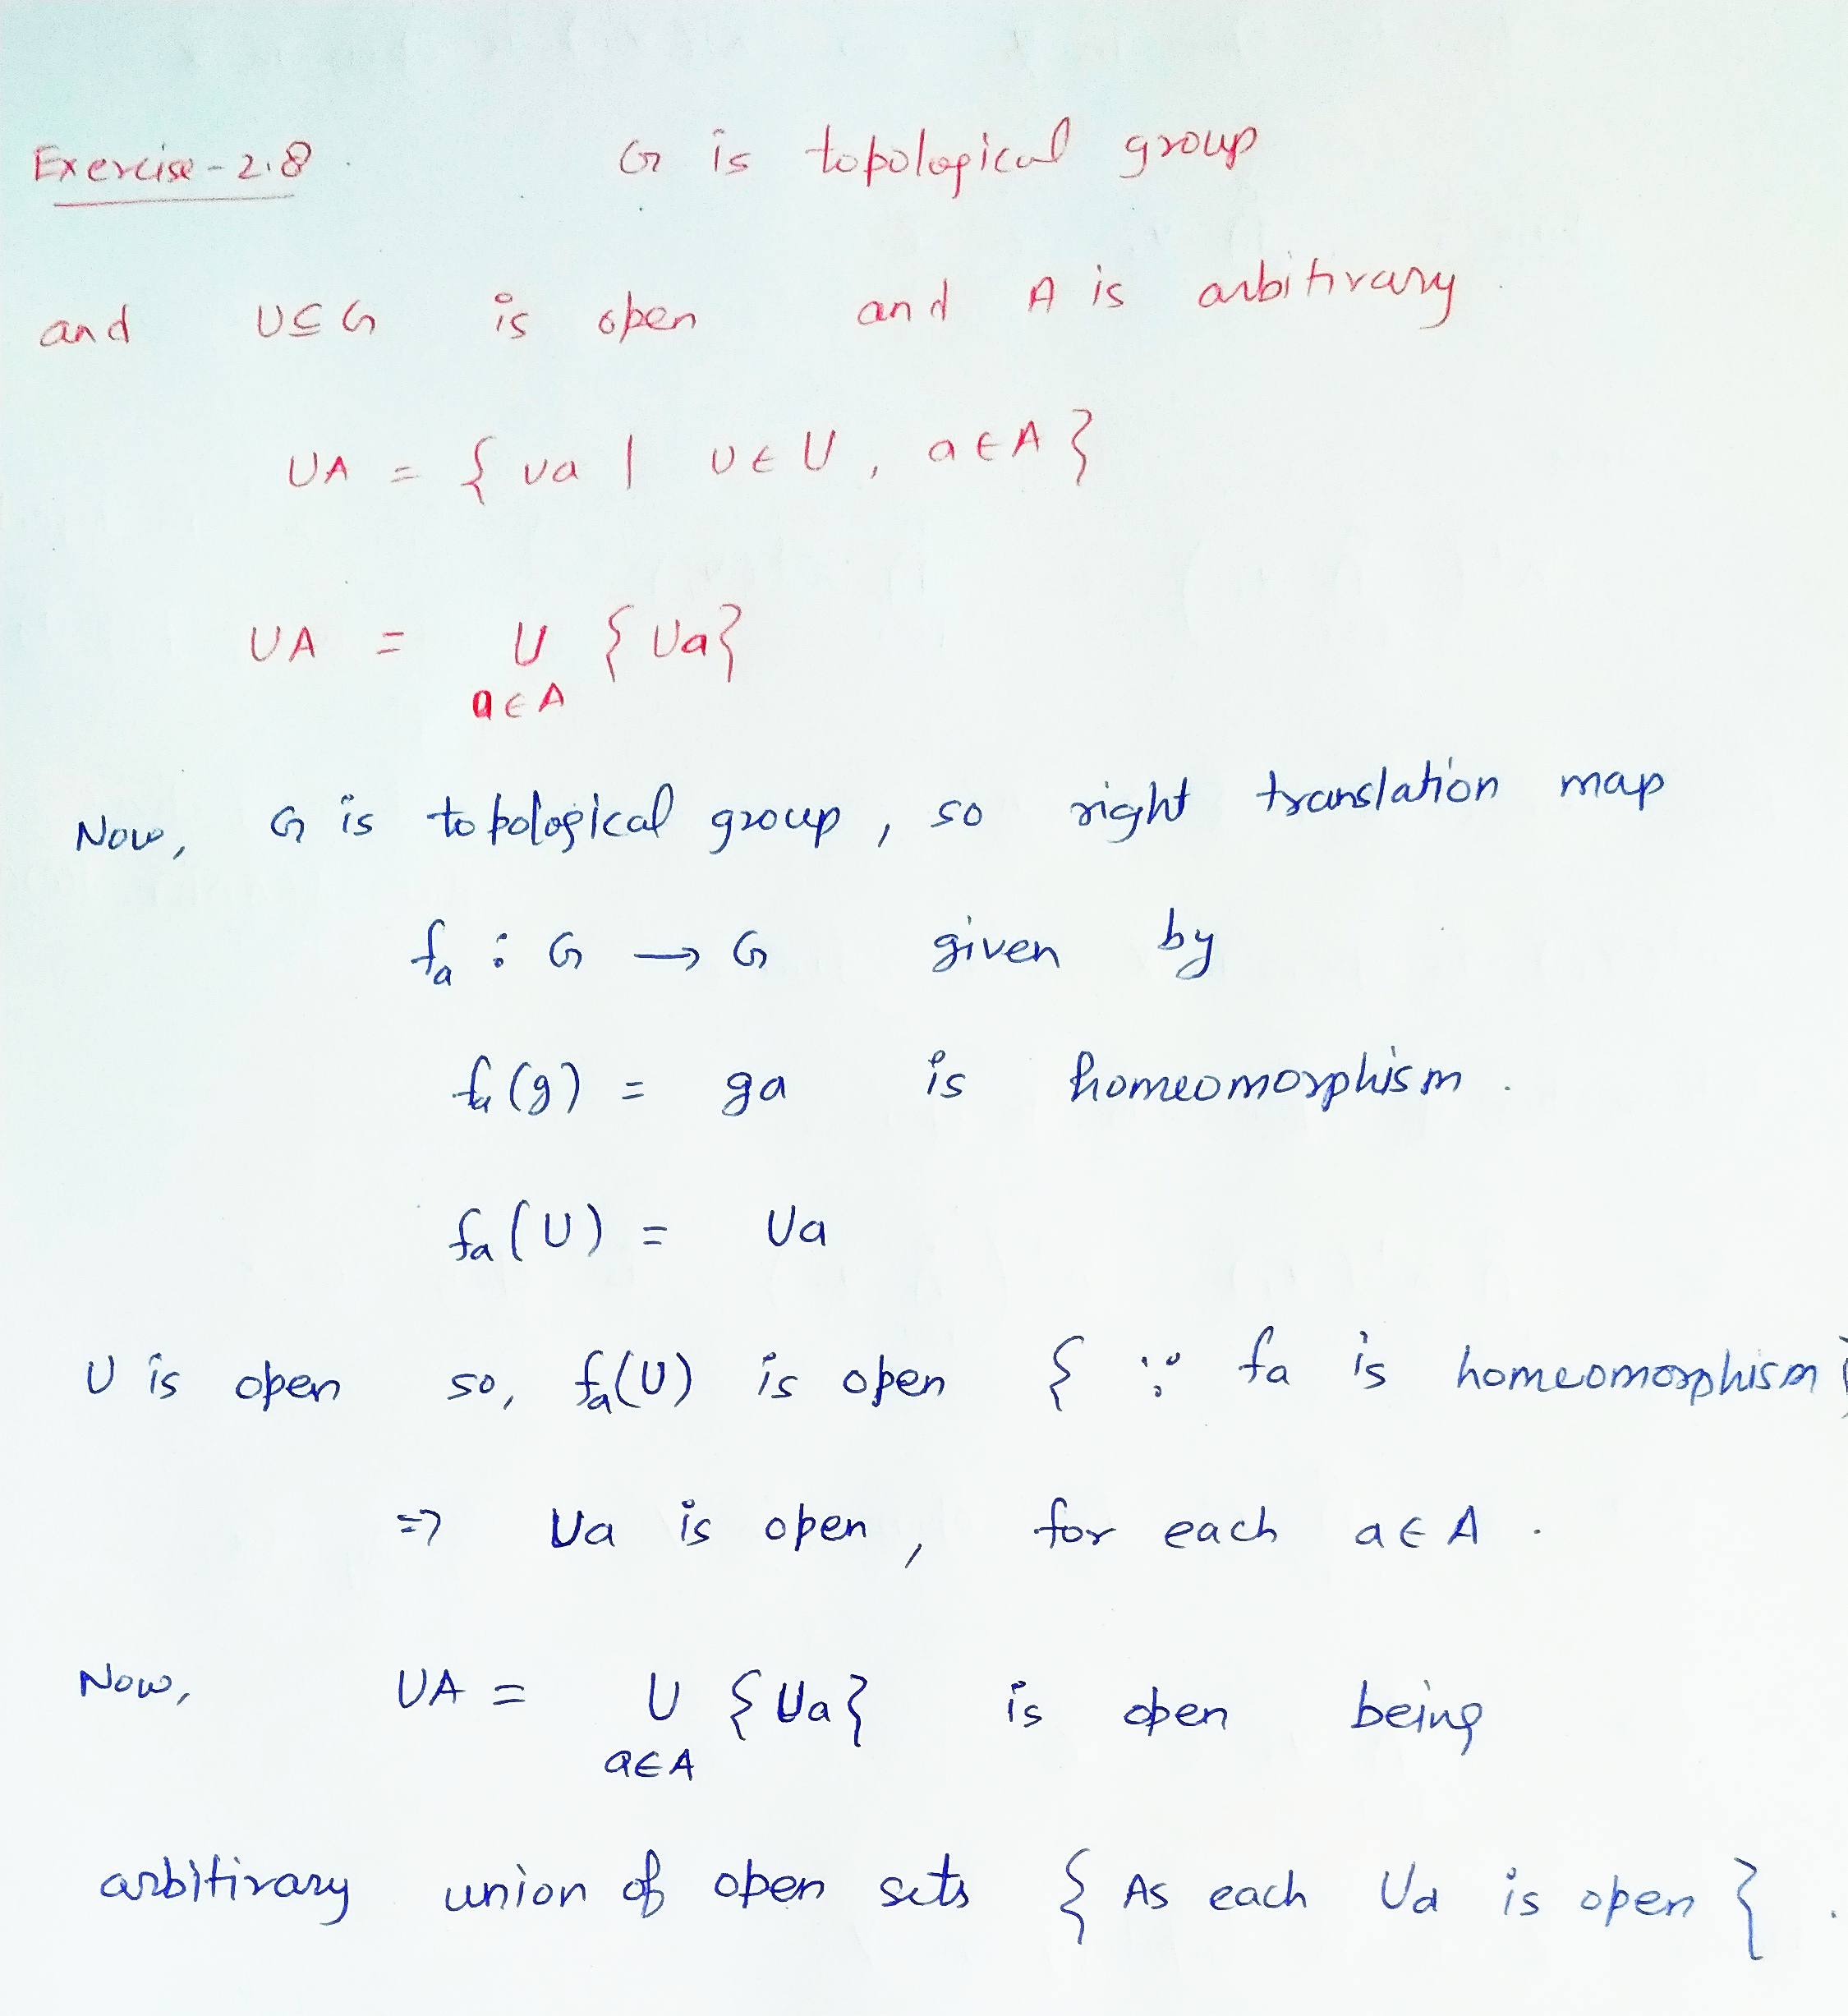 Exercise-2.8 G is topological group
and U⊆G is open and A is arbitirary.
UA = { ua | u∈U, a∈A }
UA = ∪ { Ua }
a∈A
Now, G is topological group, so right translation map
fa : G → G given by
fa(g) = ga is homeomorphism.
fa(U) = Ua
U is open so, fa(U) is open { ∵ fa is homeomorphism }
⇒ Ua is open, for each a∈A.
Now, UA = ∪ { Ua } is open being
a∈A
arbitirary union of open sets { As each Ua is open }.